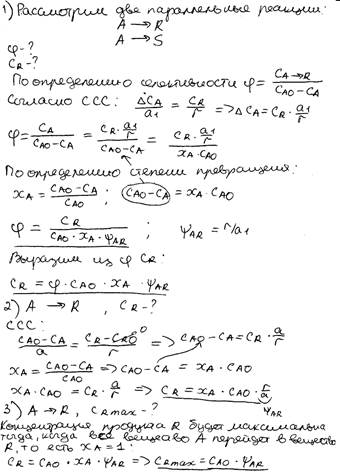 1) Рассмотрим две параллельные реакции:
A → R
A → S
φ-?
C_R-?
По определению селективности φ = C_A→R / (C_A0 - C_A)
Согласно ССС: ΔC_A/a_1 = C_R/r => ΔC_A = C_R · a_1/r
φ = C_A/(C_A0 - C_A) = (C_R · a_1/r)/(C_A0 - C_A) = (C_R · a_1/r)/(x_A · C_A0)
По определению степени превращения:
x_A = (C_A0 - C_A)/C_A0 ; C_A0 - C_A = x_A · C_A0
φ = C_R/(C_A0 · x_A · ψ_AR) ; ψ_AR = r/a_1
Выразим из φ C_R:
C_R = φ · C_A0 · x_A · ψ_AR
2) A → R , C_R-?
ССС:
(C_A0 - C_A)/a = (C_R - C_R0^0)/r => C_A0 - C_A = C_R · a/r
x_A = (C_A0 - C_A)/C_A0 => C_A0 - C_A = x_A · C_A0
x_A · C_A0 = C_R · a/r => C_R = x_A · C_A0 · r/a
ψ_AR
3) A → R , C_Rmax - ?
Концентрация продукта R будет максимальна
тогда, когда всё вещество A перейдет в вещество
R, то есть x_A = 1:
C_R = C_A0 · x_A · ψ_AR => C_Rmax = C_A0 · ψ_AR